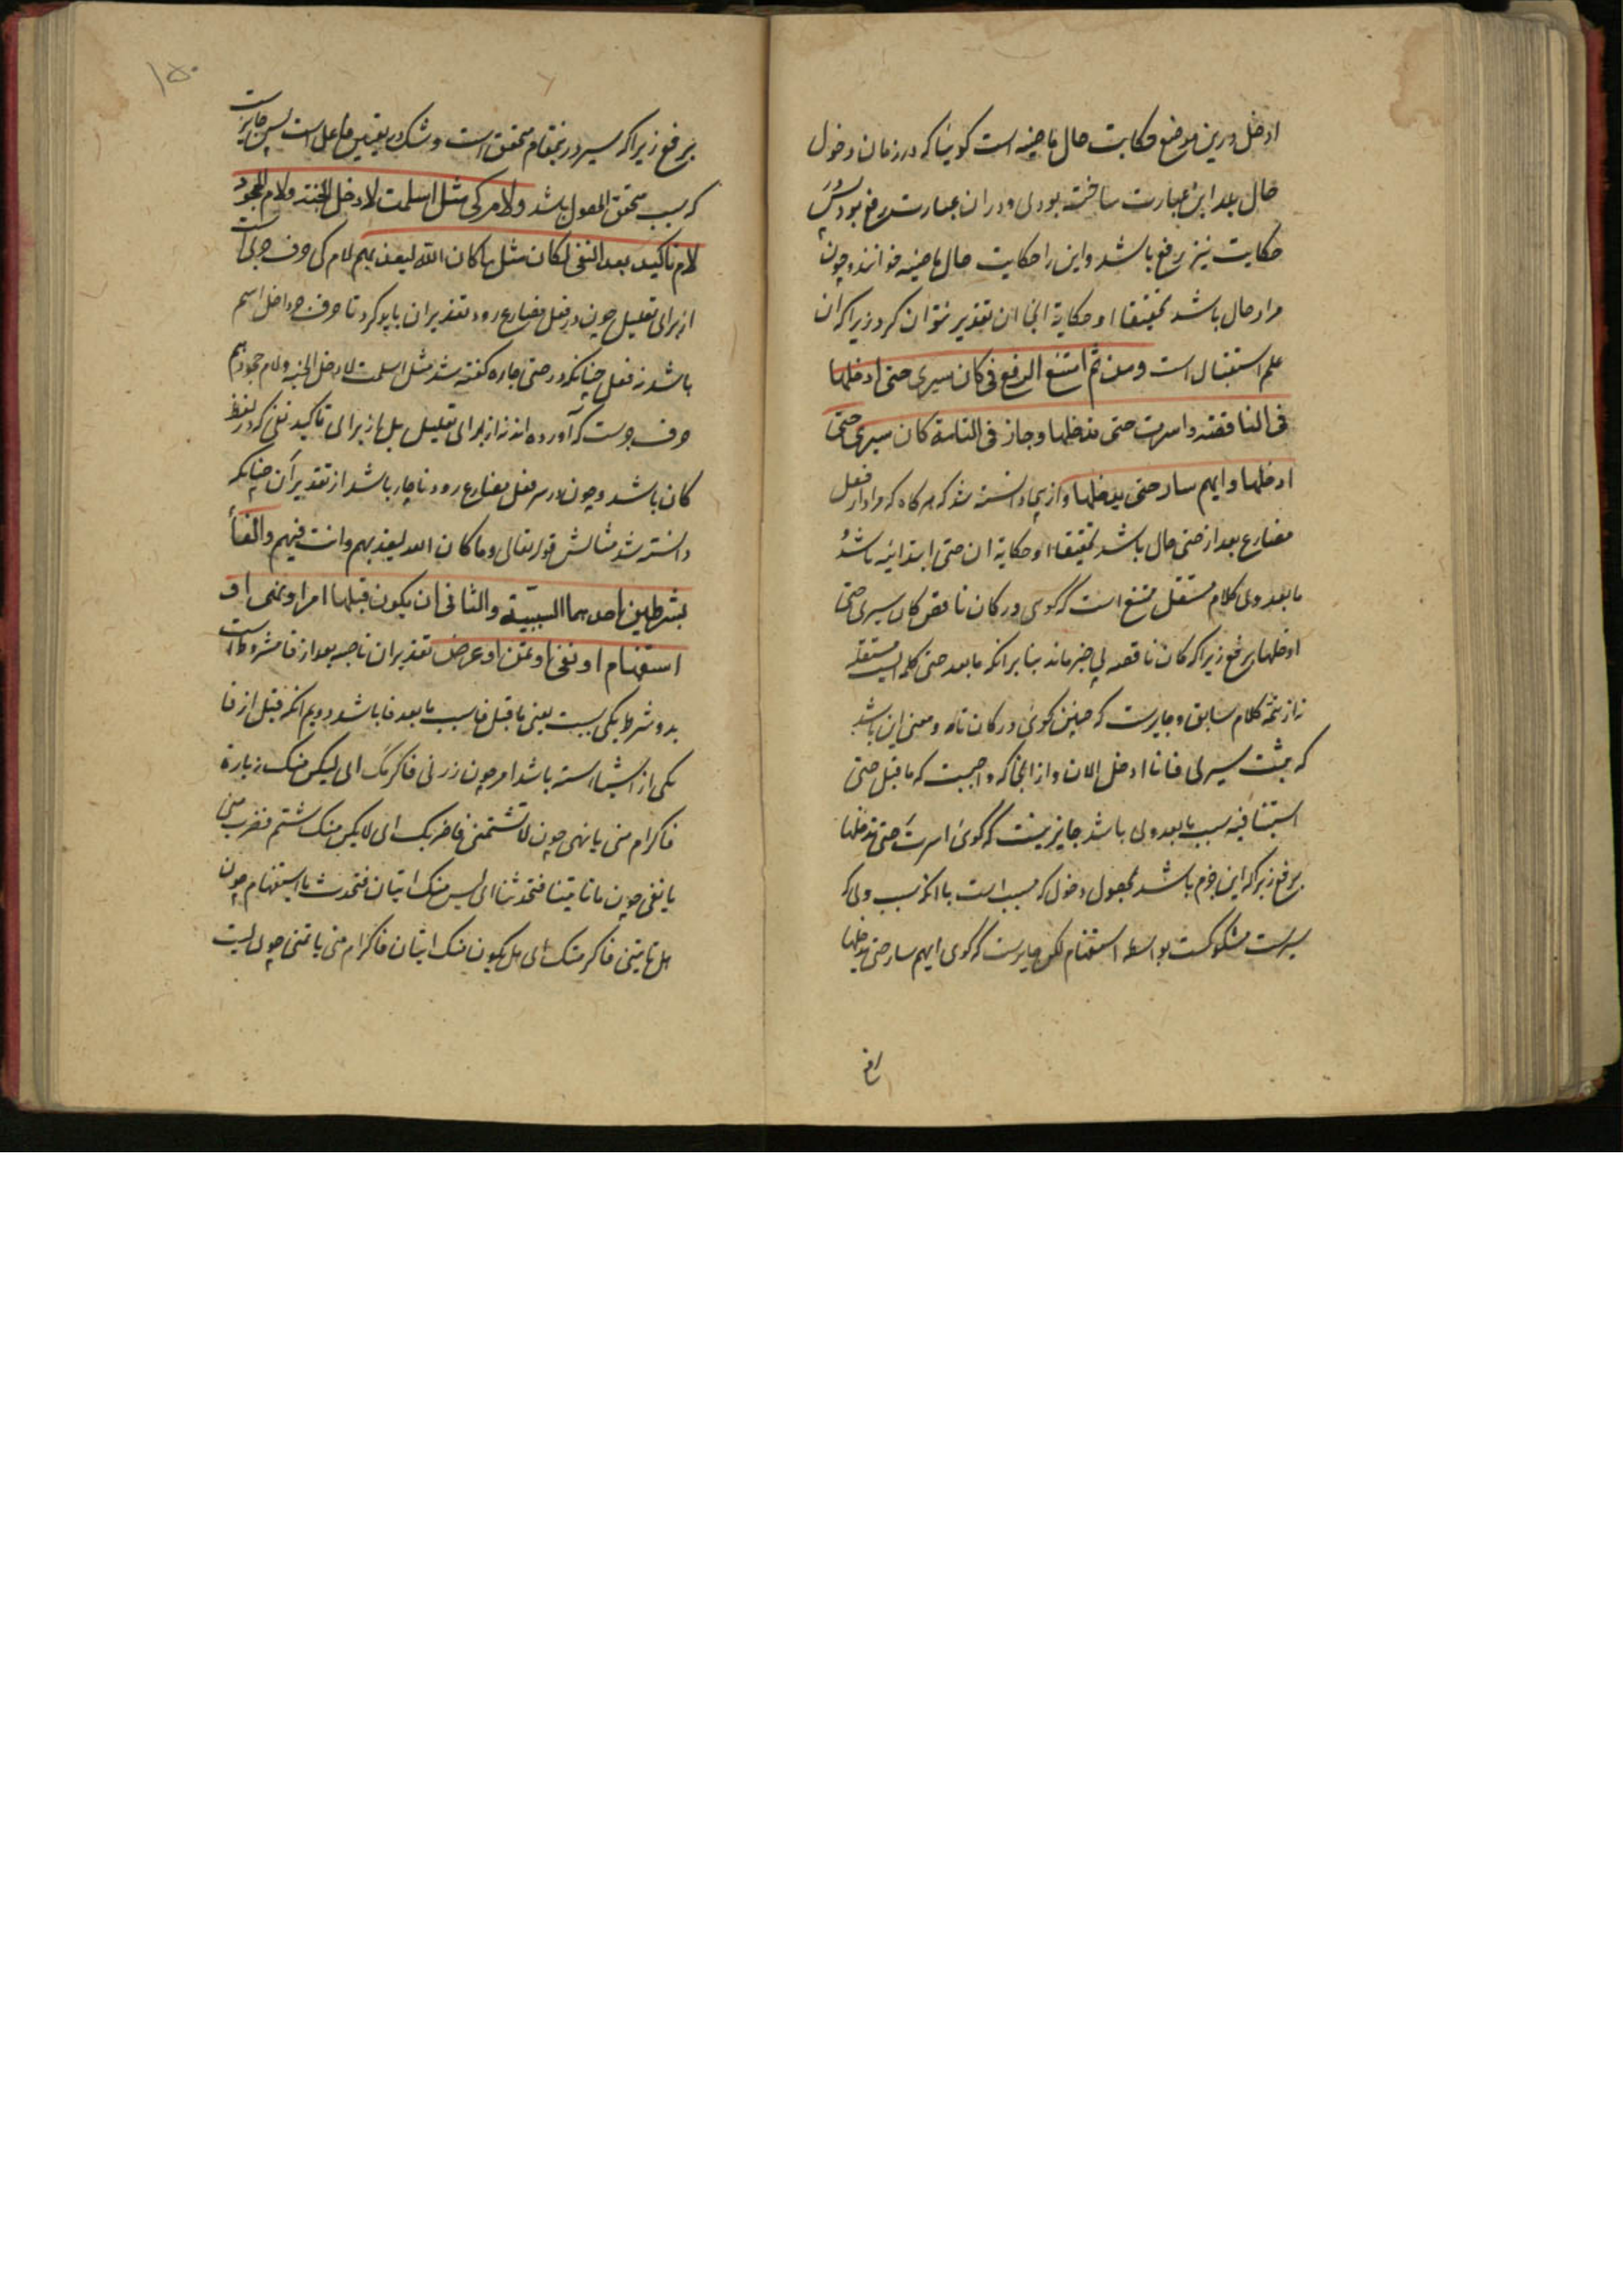 ادخل درین موضع حکایت حال ماضیه است کوئیا که در زمان دخول
حال بعد این عبارت ساخته بودی و در ان عبارت برفع بود پس در
حکایت نیز برفع باشد و این را حکایت حال ماضیه خوانند و چون
مراد حال باشد تحقیقا او حکایة انجا ان تقدیر نتوان کرد زیرا که ان
علم استقبال است ومن ثم امتنع الرفع فی کان سیری حتی ادخلها
فی الناقصة واسرت حتی تدخلها وجاز فی التامة کان سیری حتی
ادخلها وایهم سار حتی یدخلها و ازینجا دانسته شد که هر کاه که مراد از فعل
مضارع بعد از حتی حال باشد تحقیقا او حکایة ان حتی ابتدائیه باشد و
ما بعد وی کلام مستقل ممتنع است که کوی در کان ناقص کان سیری حتی
ادخلها برفع زیرا که کان ناقصه بی خبر ماند بنا برانکه ما بعد حتی کلمه ایست مستقله
نه از تتمه کلام سابق و جایزست که چنین کوی در کان تامه و معنی این باشد
که ثبت سیری فانا ادخل الان و از انجا که واجبست که ما قبل حتی
استینافیه سبب ما بعد وی باشد جایز نیست که کوی اسرت حتی تدخلها
برفع زیرا که این جزم باشد بحصول دخول که مسبب است با انکه سبب وی که
سیرست مشکوکست بواسطه استفهام لکن جایزست که کوی ایهم سار حتی یدخلها
برفع
برفع زیرا که سیر درینمقام متحقق است و شک در تعیین فاعل است پس جایزست
که سبب متحقق الحصول باشد ولام کی مثل اسلمت لادخل الجنة ولام الجحود
لام تاکید بعد النفی لکان مثل ما کان الله لیعذبهم لام کی حرف جری است
از برای تعلیل چون در فعل مضارع رود تقدیر ان باید کرد تا حرف جر داخل اسم
باشد نه فعل چنانکه در حتی جاره کفته شد مثل اسلمت لادخل الجنة ولام جحود هم
حرف جرست که آورده اند نه از برای تعلیل بل از برای تاکید نفی که در لفظ
کان باشد و چون در سر فعل مضارع رود ناچار باشد از تقدیر ان چنانکه
دانسته شد مثالش قوله تعالی وما کان الله لیعذبهم وانت فیهم والفاء
بشرطین احدهما السببیة والثانی ان یکون قبلها امر او نهی او
استفهام او نفی او تمن او عرض تقدیر ان ناصبه بعد از فا مشروط است
بدو شرط یکی سببیت یعنی ما قبل فا سبب ما بعد فا باشد دویم انکه قبل از فا
یکی از اشیاء سته باشد امر چون زرنی فاکرمک ای لیکن منک زیارة
فاکرام منی یا نهی چون لا تشتمنی فاضربک ای لا یکن منک شتم فضرب منی
یا نفی چون ما تاتینا فتحدثنا ای لیس منک اتیان فتحدث یا استفهام چون
هل تاتینی فاکرمک ای هل یکون منک اتیان فاکرام منی یا تمنی چون لیت